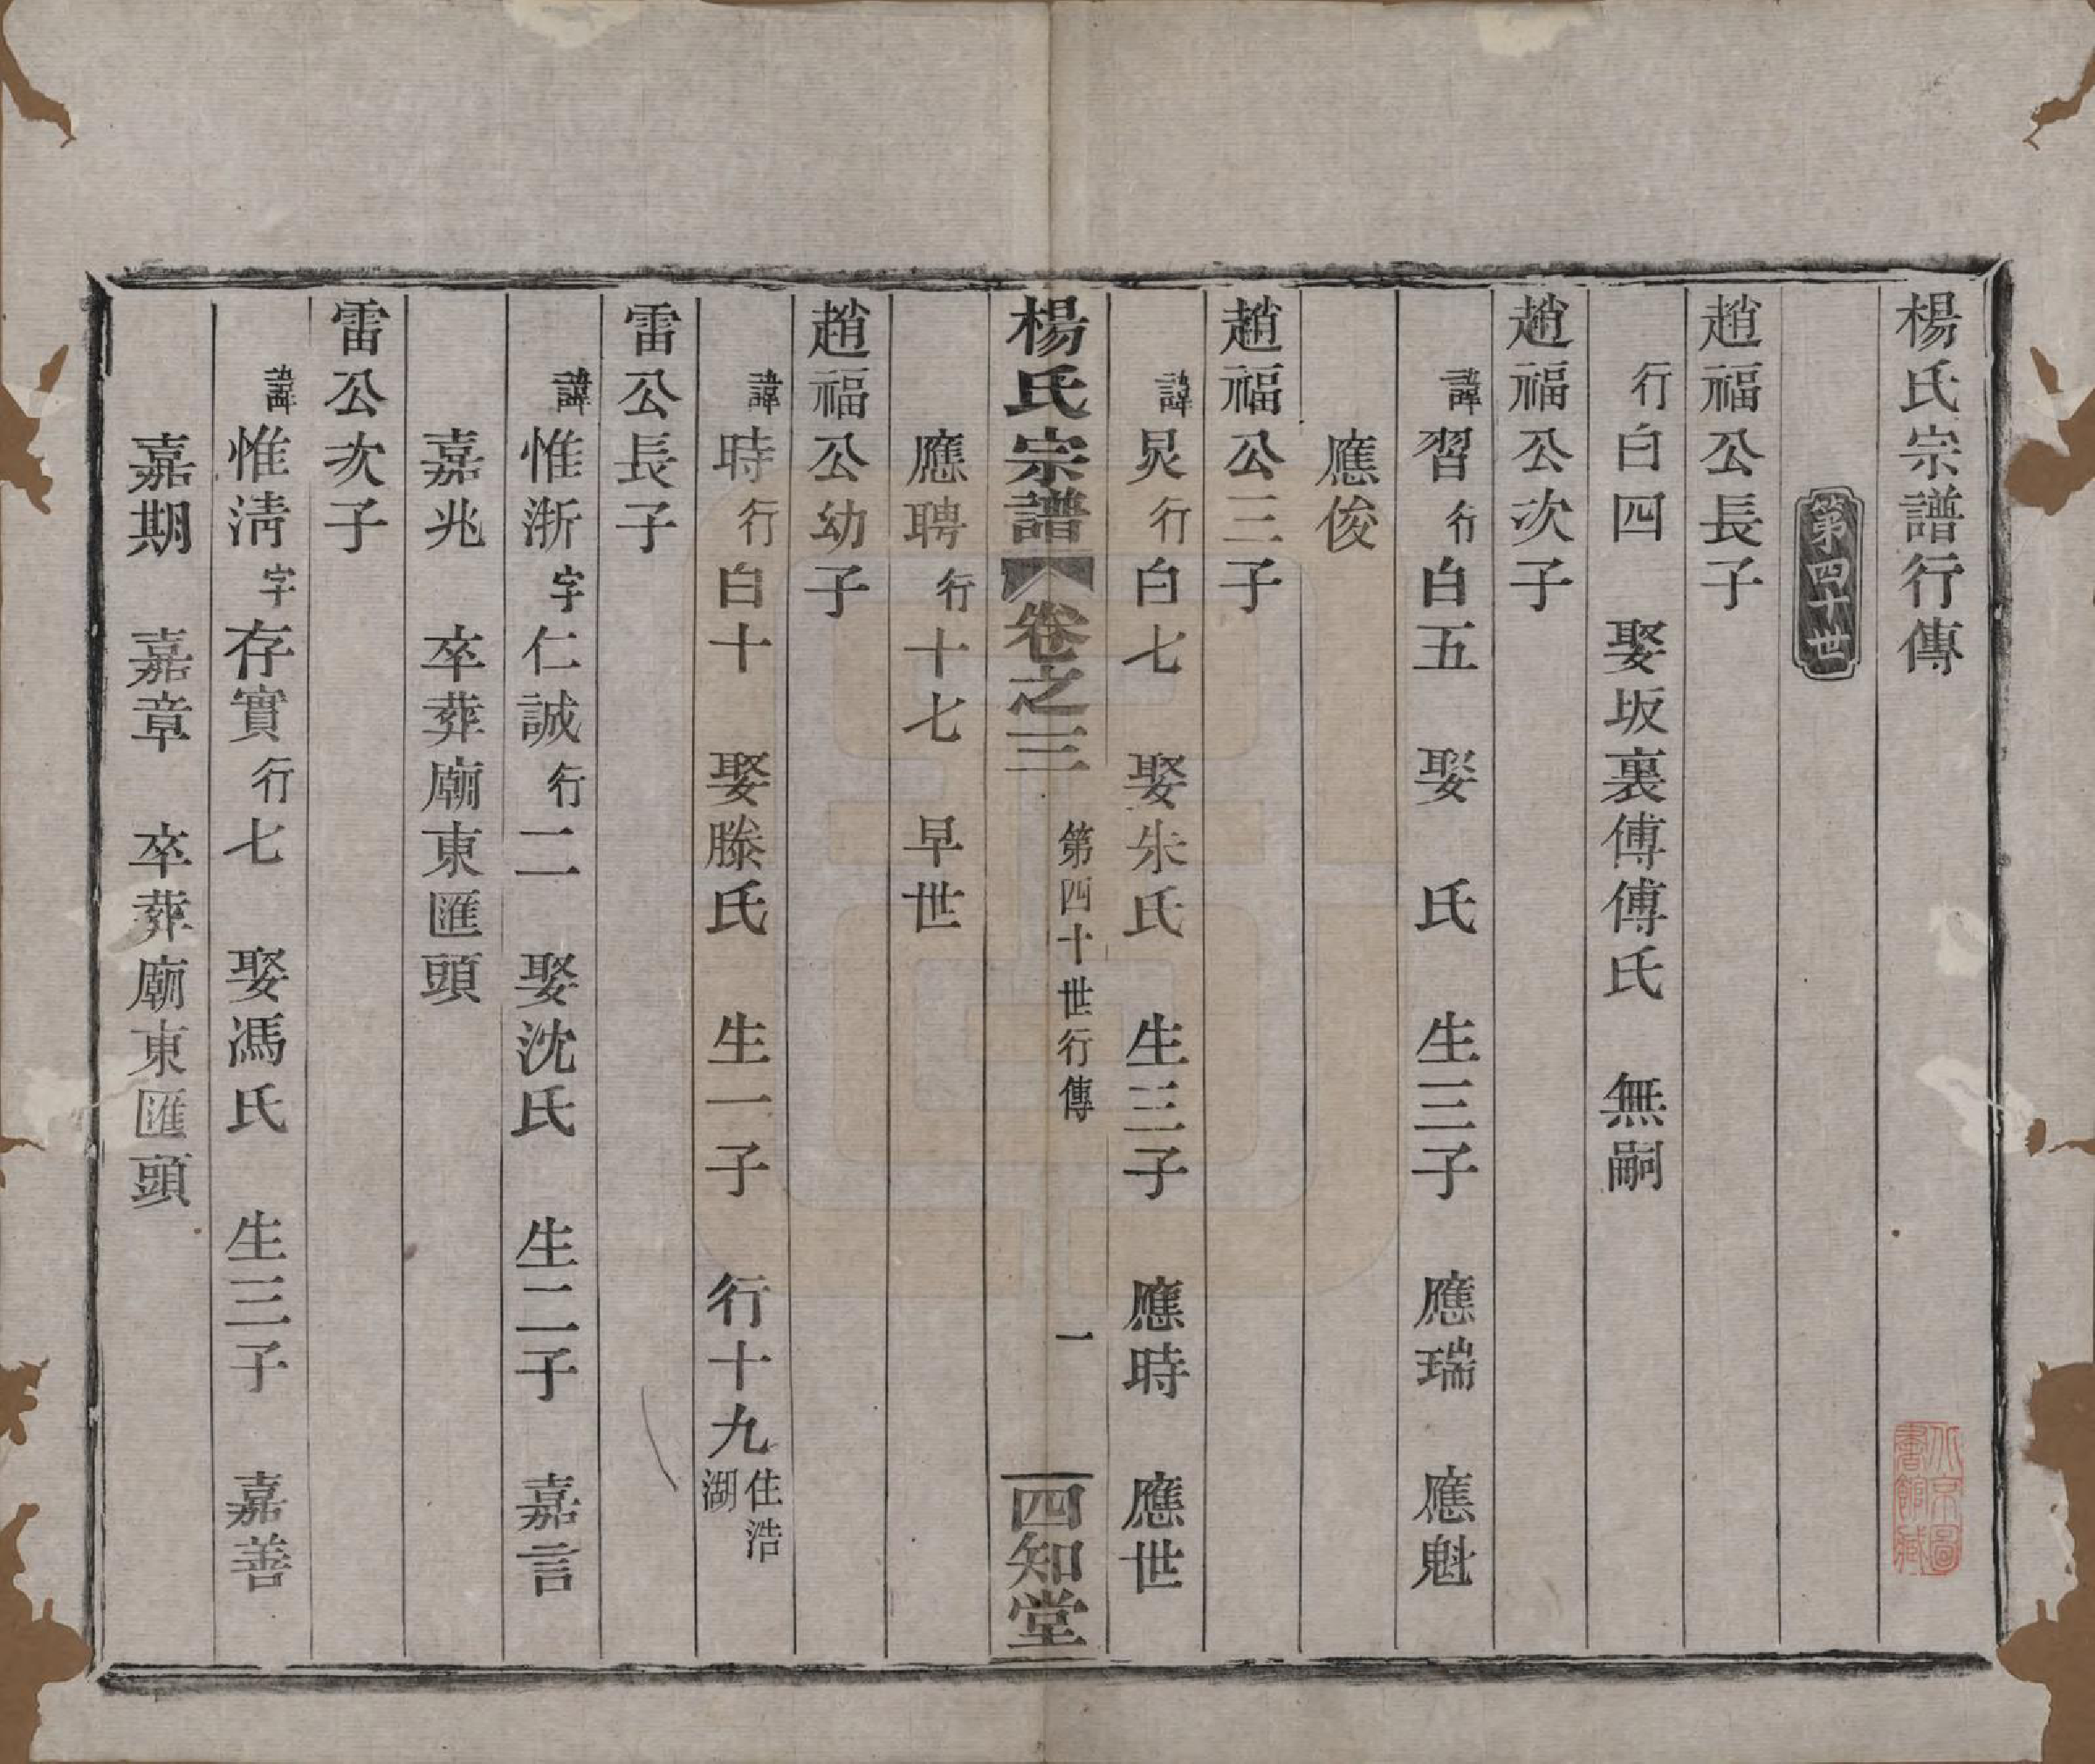 楊氏宗譜行傳
第四十世
趙福公長子
行白四　娶坂裏傅傅氏　無嗣
趙福公次子
諱習行白五　娶　氏　生三子　應瑞　應魁
應俊
趙福公三子
諱炅行白七　娶朱氏　生三子　應時　應世
楊氏宗譜　卷之三　第四十世行傳　一　四知堂
應聘行十七　早世
趙福公幼子
諱時行白十　娶滕氏　生一子　行十九住浩湖
雷公長子
諱惟浙字仁誠行二　娶沈氏　生二子　嘉言
嘉兆　卒葬廟東匯頭
雷公次子
諱惟淸字存實行七　娶馮氏　生三子　嘉善
嘉期　嘉章　卒葬廟東匯頭
北京圖書館藏